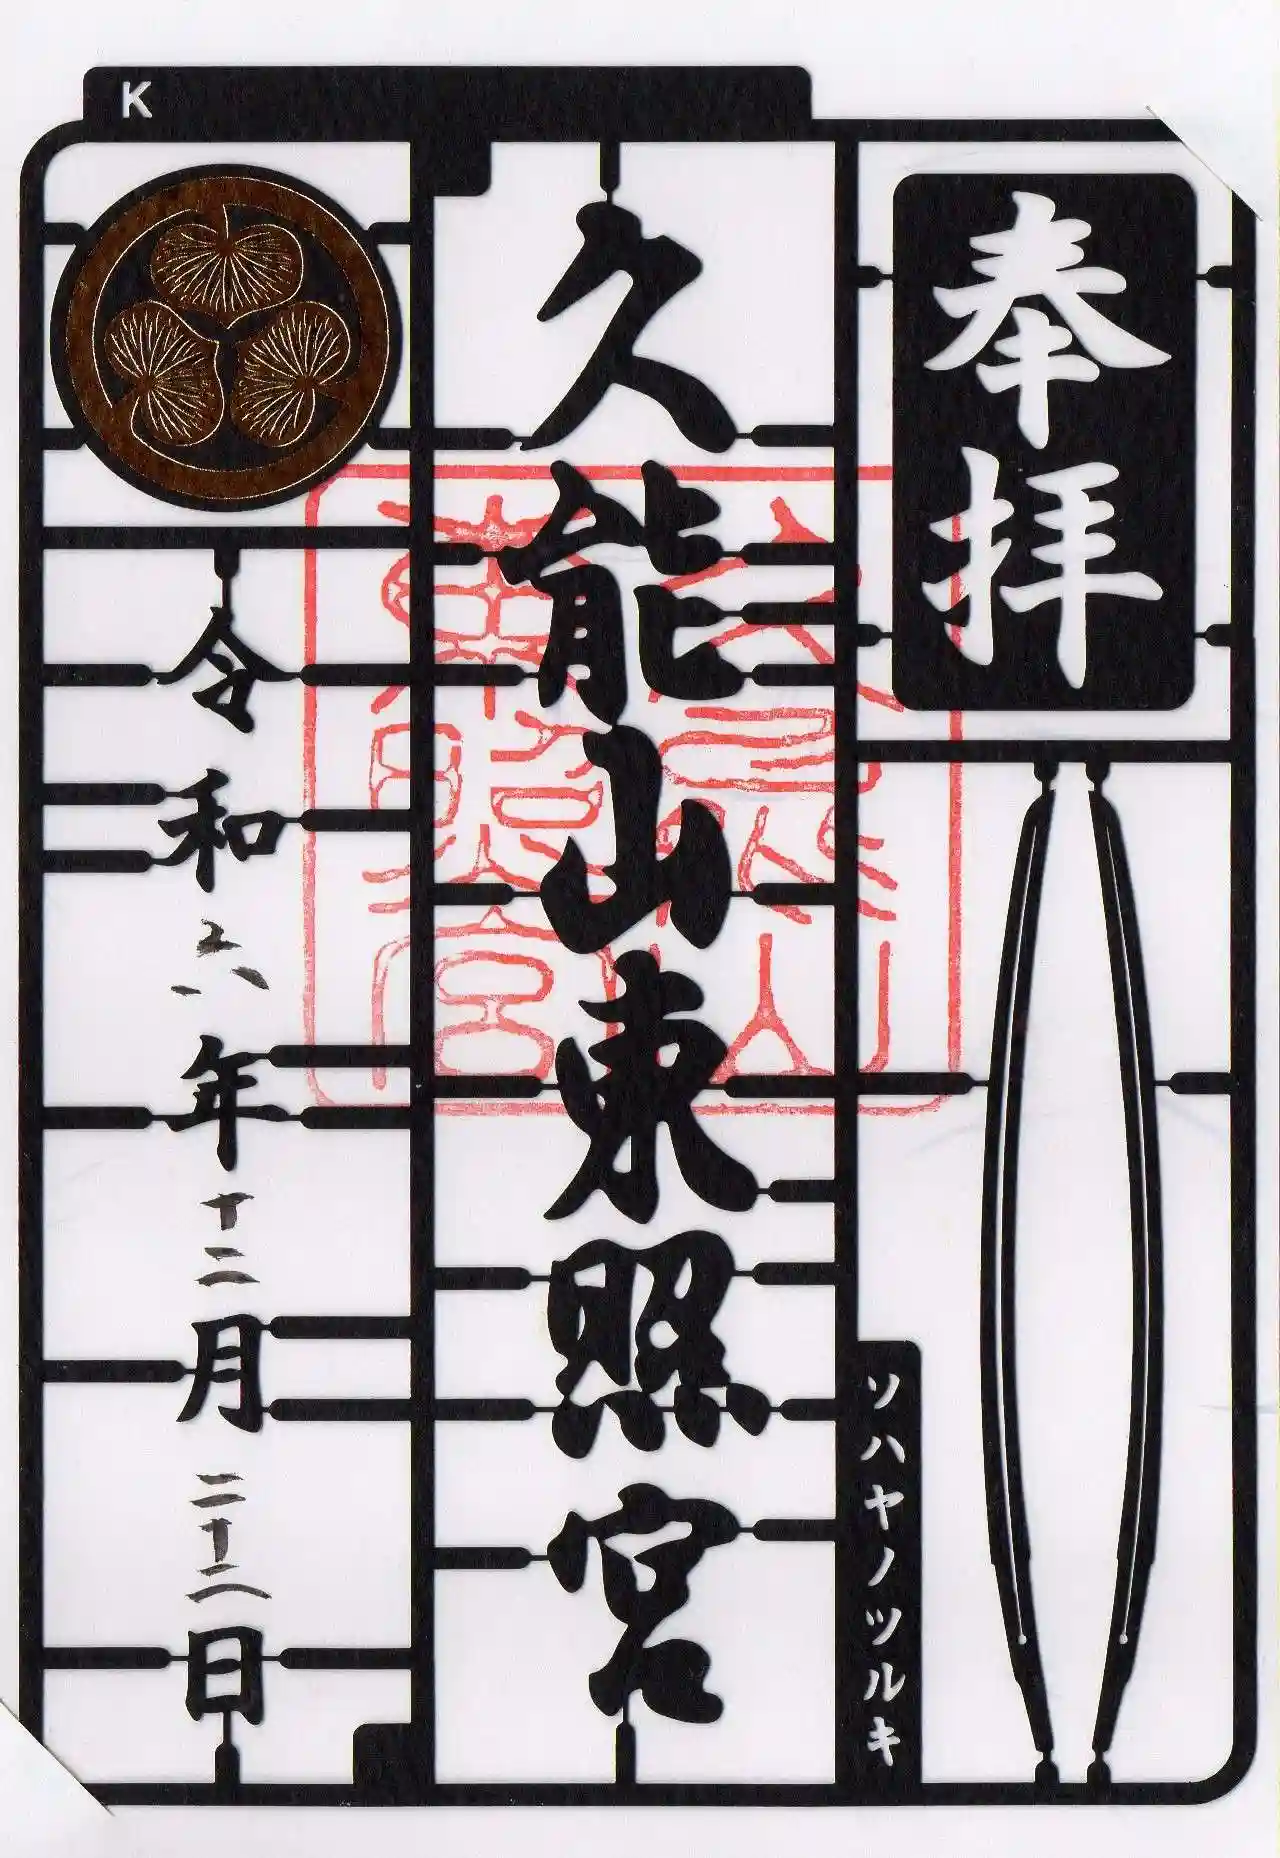 K
奉拝
ソハヤノツルキ
久能山東照宮
令和六年十二月二十二日
久能山
東照宮